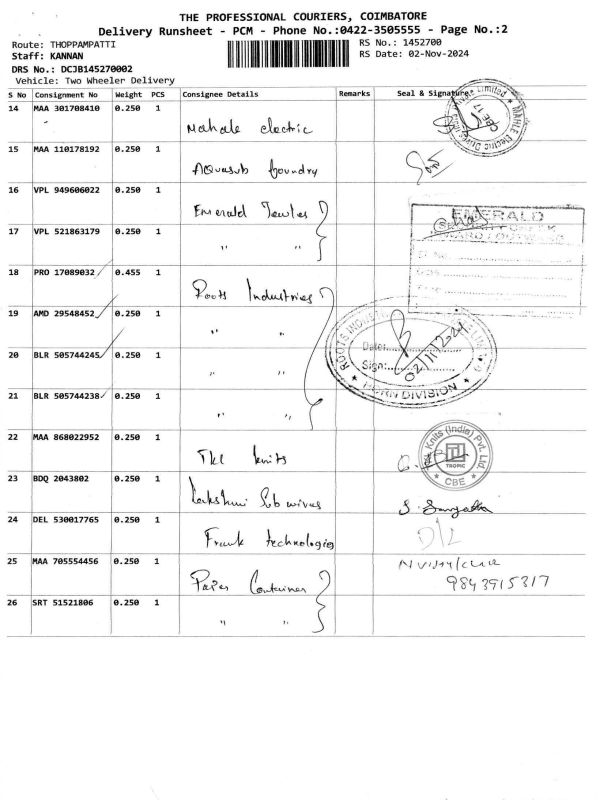 THE PROFESSIONAL COURIERS, COIMBATORE
Delivery Runsheet - PCM - Phone No.:0422-3505555 - Page No.:2
Route: THOPPAMPATTI
RS No.: 1452700
Staff: KANNAN
RS Date: 02-Nov-2024
DRS No.: DCJB145270002
Vehicle: Two Wheeler Delivery
S No Consignment No Weight PCS Consignee Details Remarks Seal & Signature
14 MAA 301708410 0.250 1
Mahale electric
Limited MAHLE Electric Drives
CBE 17
15 MAA 110178192 0.250 1
AQuasub foundry
16 VPL 949606022 0.250 1
Emerald Jewles
EMERALD
17 VPL 521863179 0.250 1
" "
18 PRO 17089032 0.455 1
Roots Industries
19 AMD 29548452 0.250 1
" "
ROOTS INDUSTR
Date:
Sign:
02/11/2024
HORN DIVISION
20 BLR 505744245 0.250 1
" "
21 BLR 505744238 0.250 1
" "
22 MAA 868022952 0.250 1
knits
Knits (India) Pvt. Ltd.
TROPIC
CBE
23 BDQ 2043802 0.250 1
Lakshmi
S. Sangeetha
24 DEL 530017765 0.250 1
Frank technologies
D/L
25 MAA 705554456 0.250 1
Container
9843915317
26 SRT 51521806 0.250 1
" "